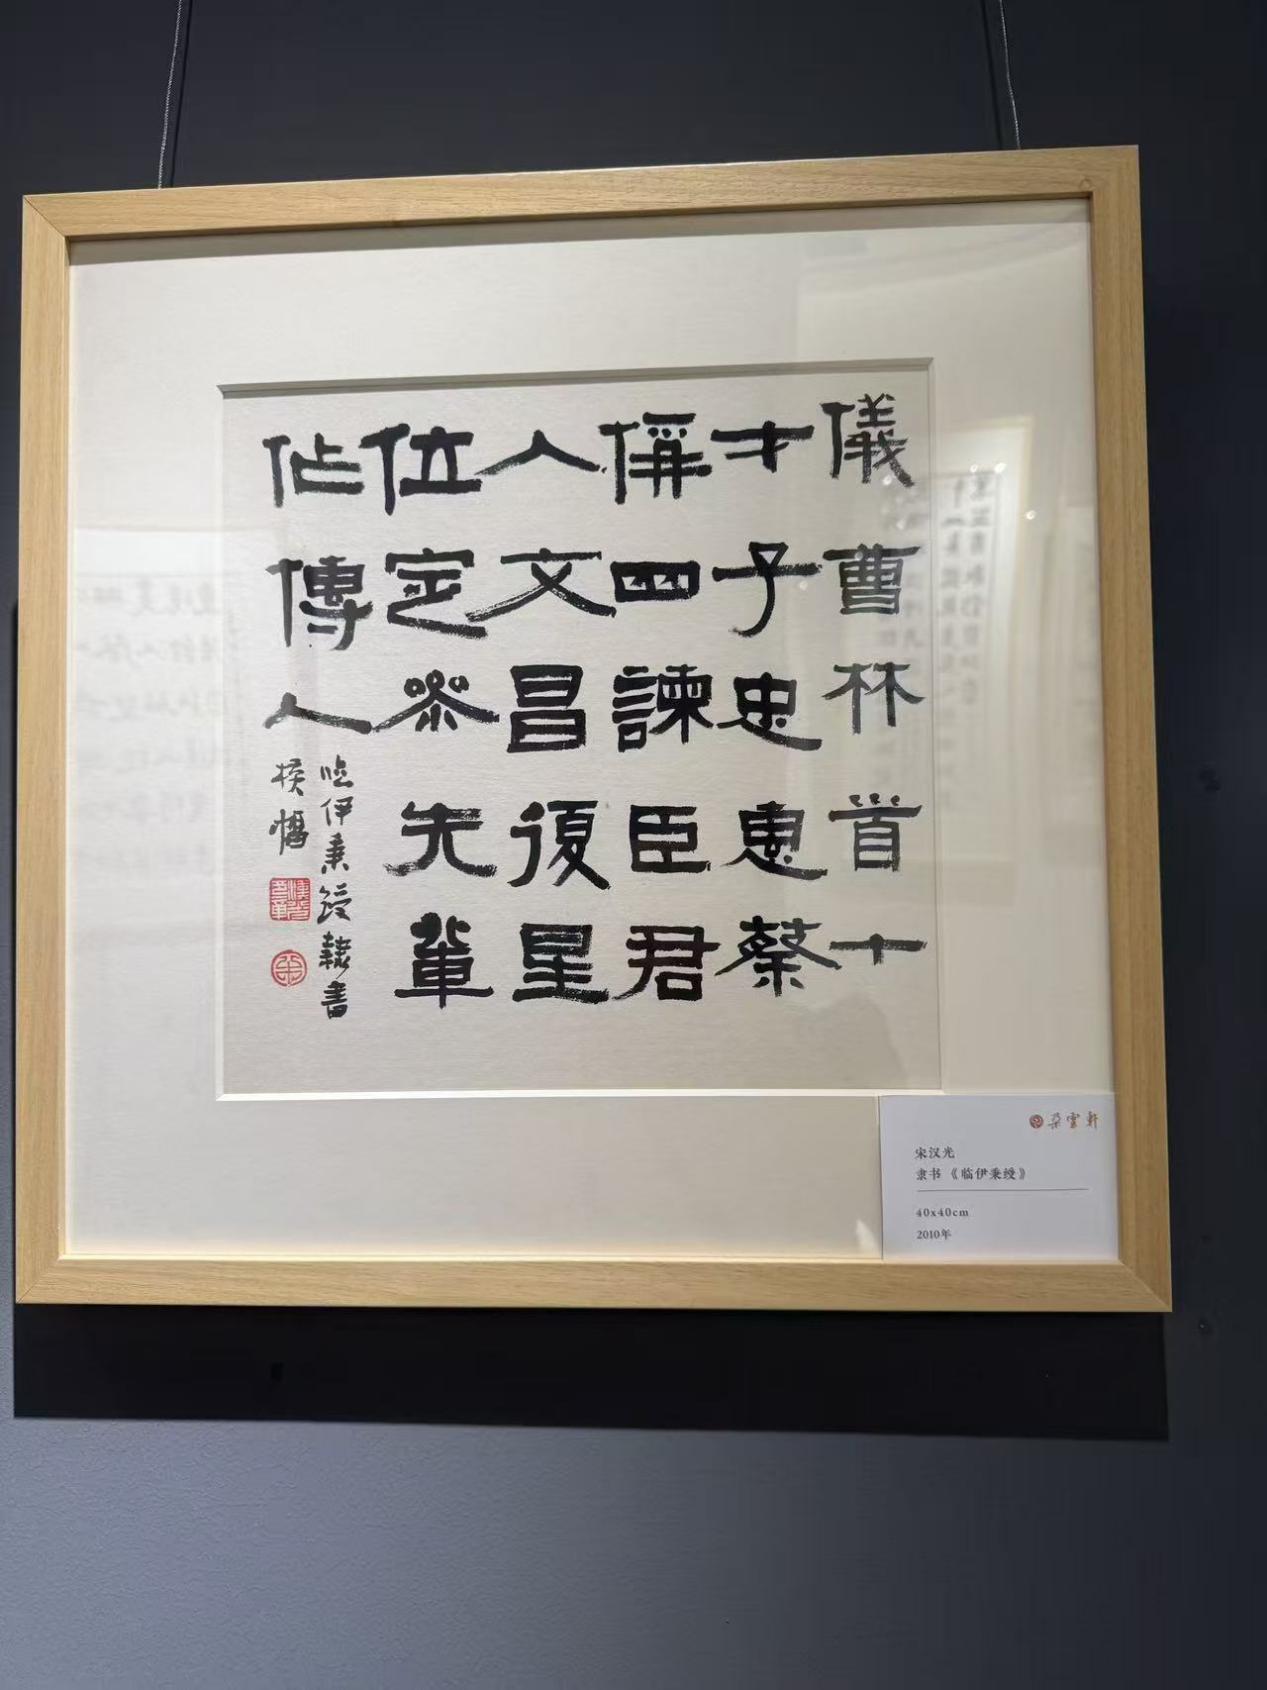 儀曹林首十
才子忠惠蔡
偁四諫臣君
人文昌復星
位定參先輩
佀傳人
臨伊秉綬隸書
朵雲軒
宋汉光
隶书《临伊秉绶》
40x40cm
2010年